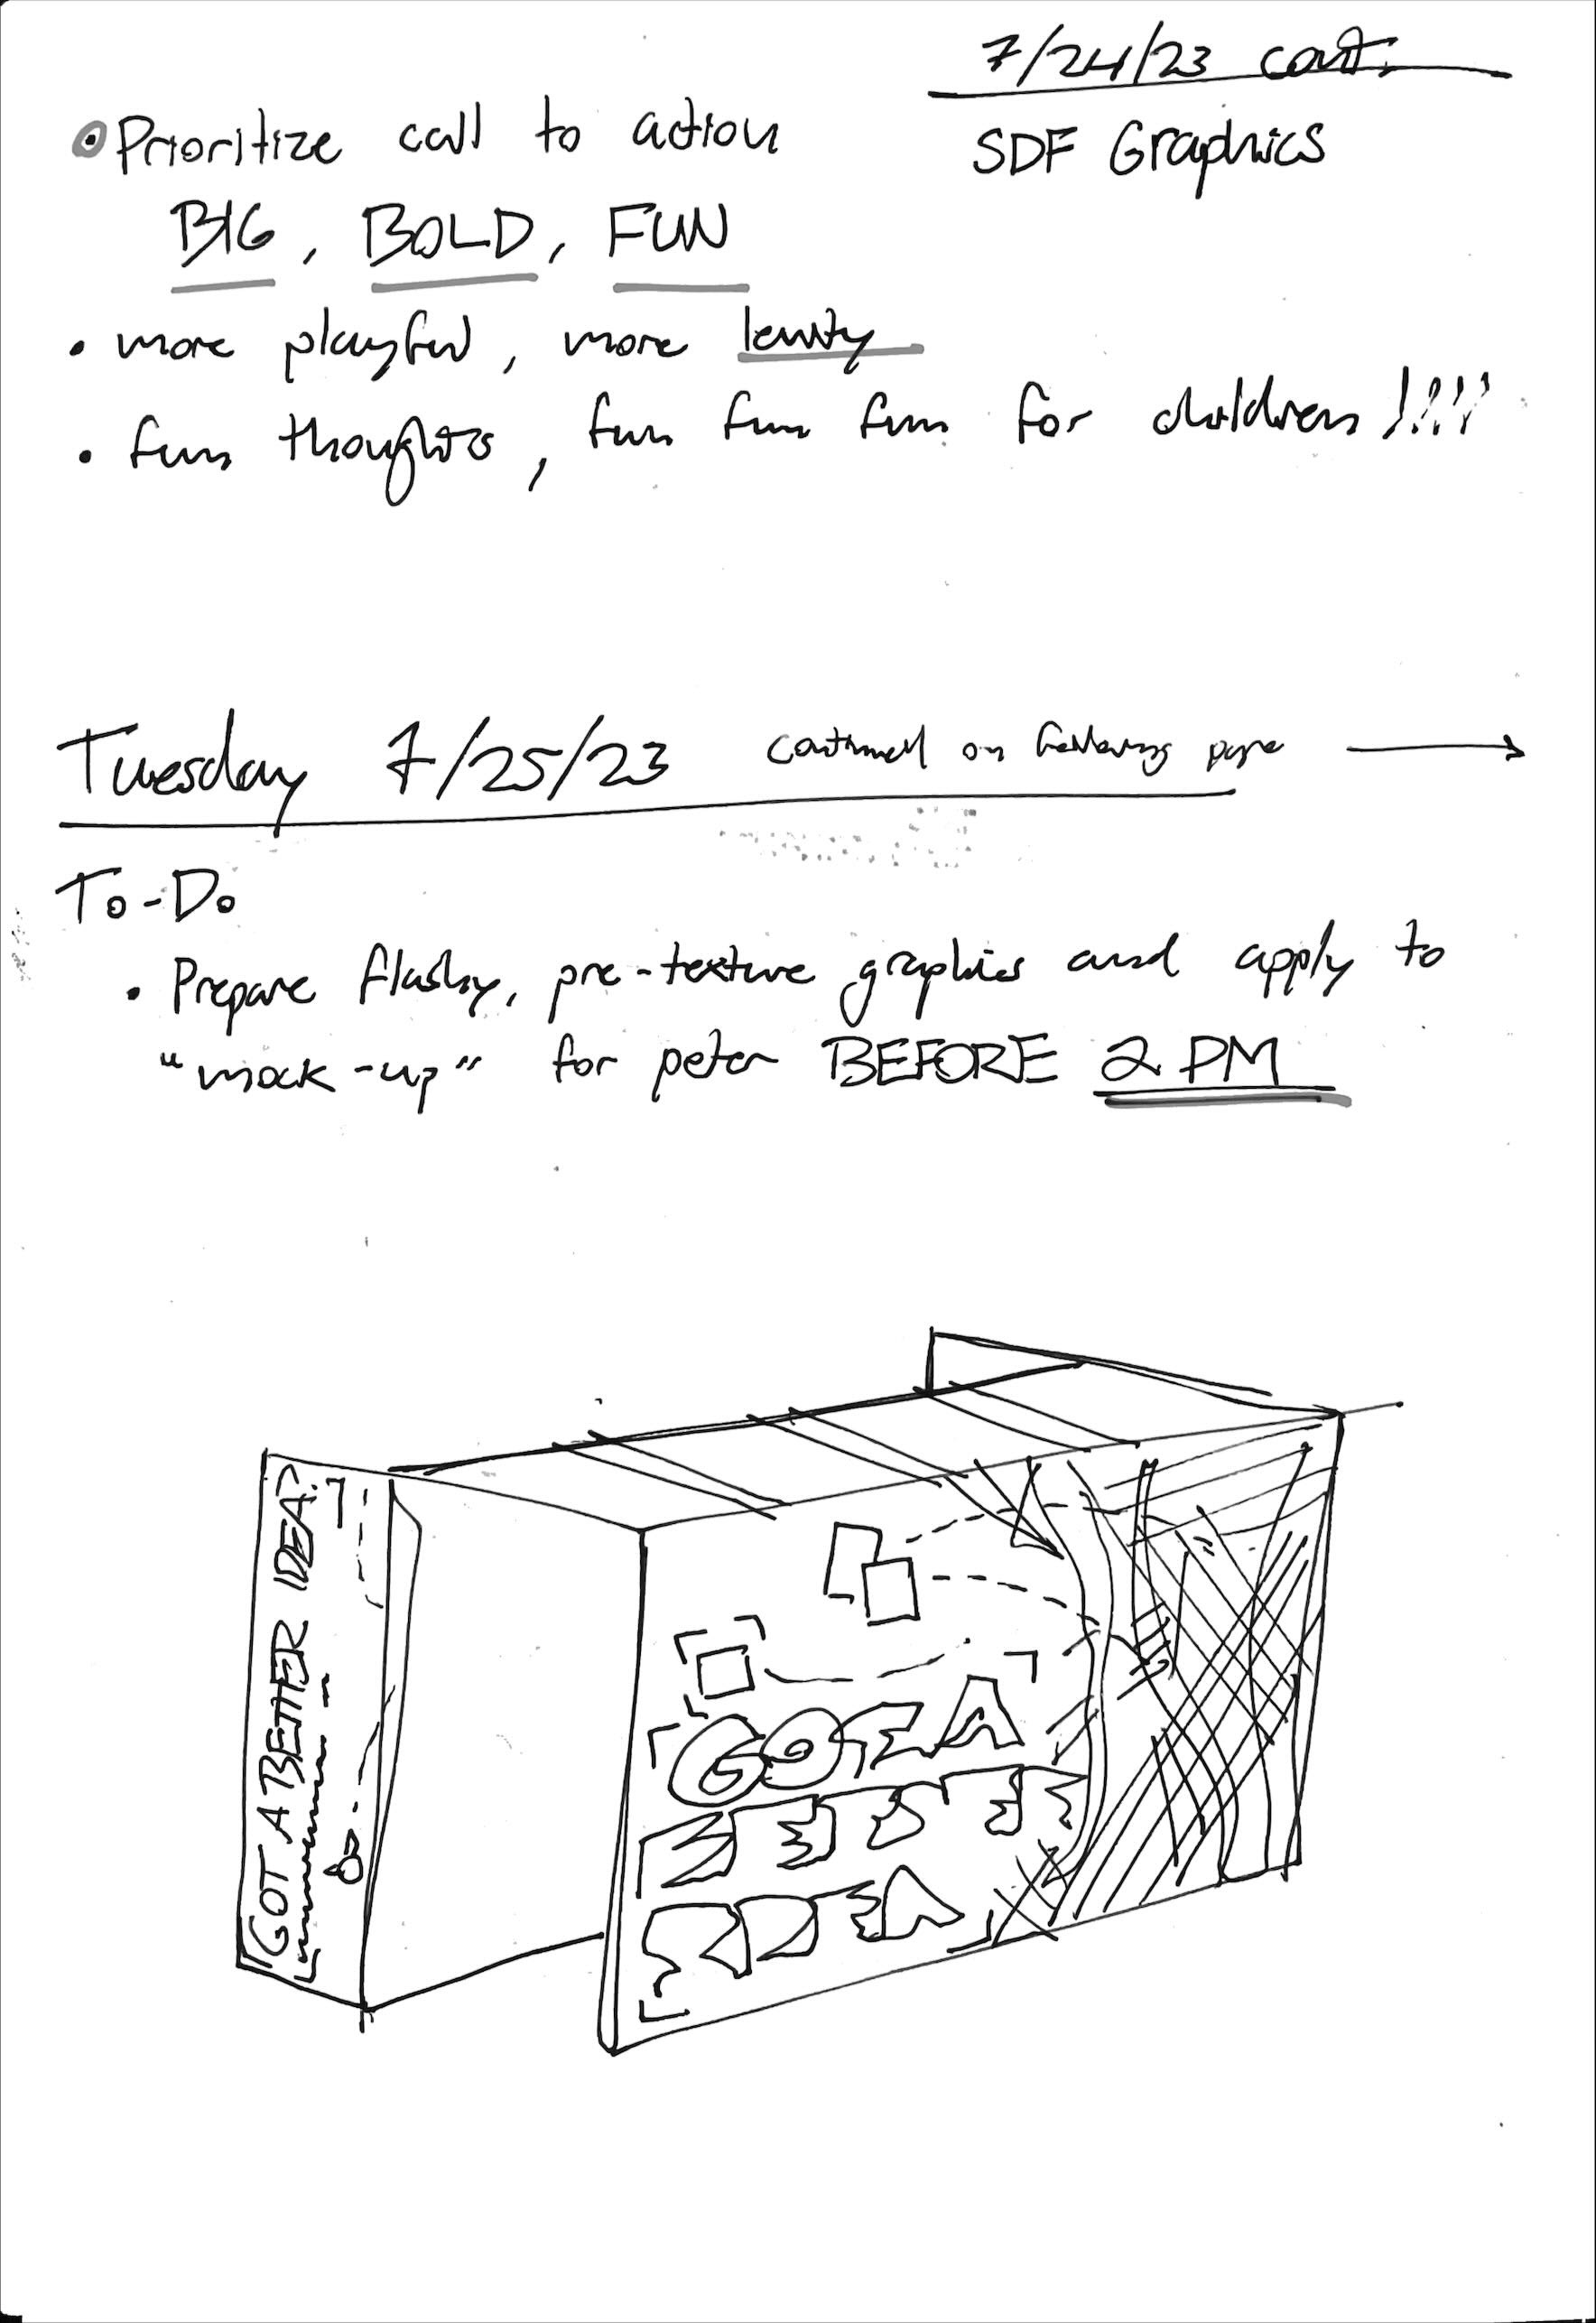 7/24/23 cont.
SDF Graphics
Prioritize call to action
BIG, BOLD, FUN
• more playful, more levity
• fun thoughts, fun fun fun for children!!!!
Tuesday 7/25/23 continued on following page
To-Do
• Prepare flashy, pre-texture graphics and apply to
"mock-up" for peter BEFORE 2 PM
GOT A BETTER IDEA?
GOT A
BETTE
IDEA